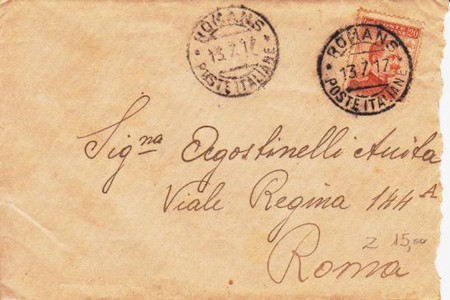 ROMANS
13.7.17
POSTE ITALIANE
ROMANS
13.7.17
POSTE ITALIANE
20
Sig.na Agostinelli Anita
Viale Regina 144 A
Z 15,00
Roma